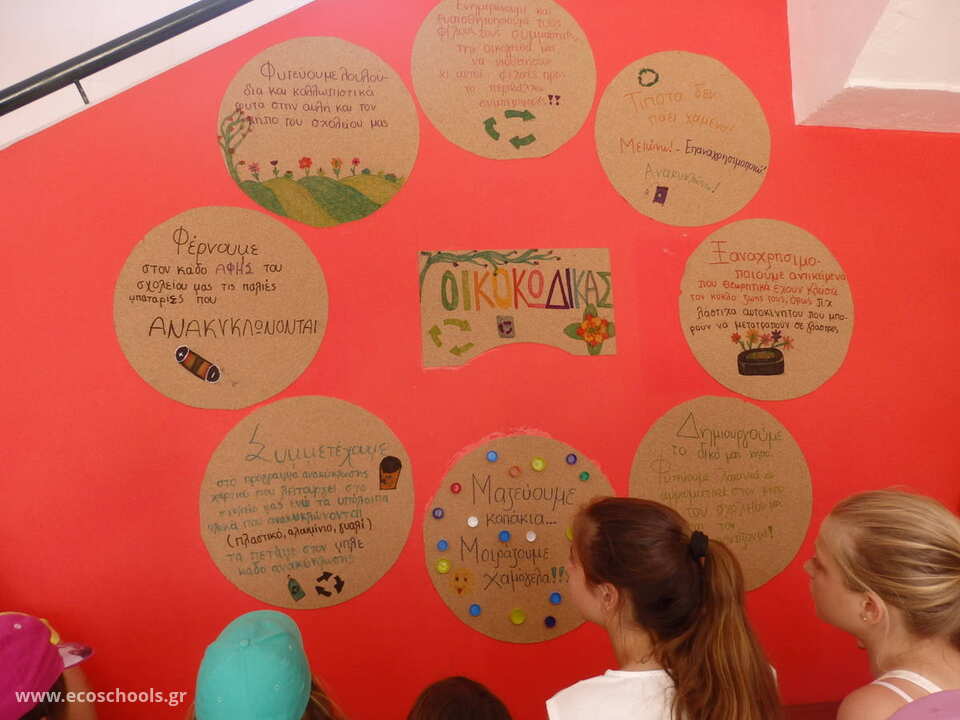 Ενημερώνουμε και
ευαισθητοποιούμε τους
φίλους τους συμμαθητές
την οικογένειά μας
να υιοθετήσουν
κι αυτοί φιλικές προς
το περιβάλλον
συμπεριφορές!!
Φυτεύουμε λουλού-
δια και καλλωπιστικά
φυτά στην αυλή και τον
κήπο του σχολείου μας
Τίποτα δεν
πάει χαμένο!
Μειώνω! - Επαναχρησιμοποιώ!
Ανακυκλώνω!
Φέρνουμε
στον κάδο ΑΦΗΣ του
σχολείου μας τις παλιές
μπαταρίες που
ΑΝΑΚΥΚΛΩΝΟΝΤΑΙ
ΟΙΚΟΚΩΔΙΚΑΣ
Ξαναχρησιμο-
ποιούμε αντικείμενα
που θεωρητικά έχουν κλείσει
τον κύκλο ζωής τους, όπως π.χ
λάστιχα αυτοκινήτου που μπο-
ρούν να μετατραπούν σε γλάστρες
Συμμετέχουμε
στο πρόγραμμα ανακύκλωσης
χαρτιού που λειτουργεί στο
σχολείο μας ενώ τα υπόλοιπα
υλικά που ανακυκλώνονται
(πλαστικό, αλουμίνιο, γυαλί)
τα πετάμε στον μπλε
κάδο ανακύκλωσης!
Μαζεύουμε
καπάκια...
Μοιράζουμε
χαμόγελα!!
Δημιουργούμε
το δικό μας κήπο.
Φυτεύουμε λαχανικά &
αρωματικά στον κήπο
του σχολείου μας
και τον
www.ecoschools.gr